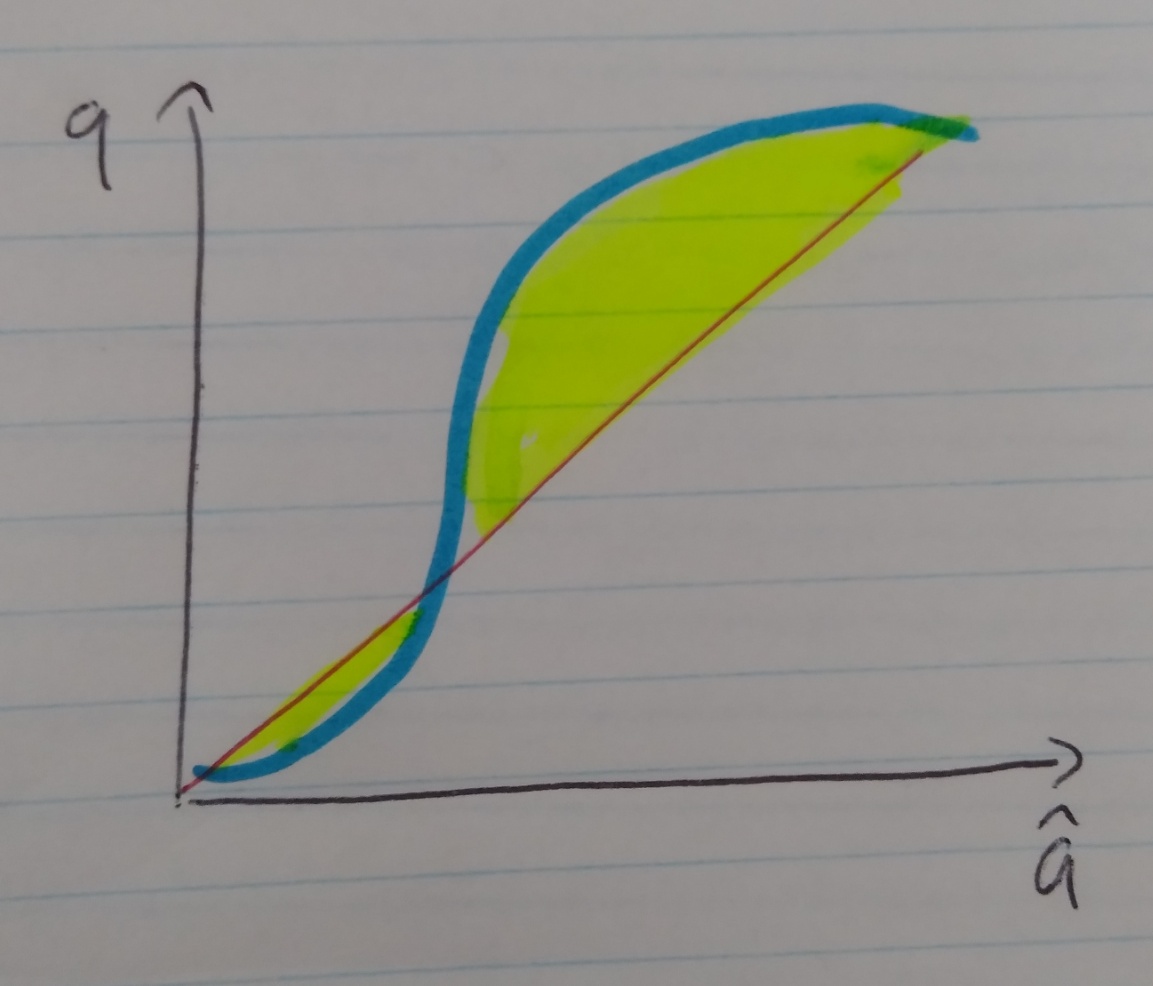 q
q̂